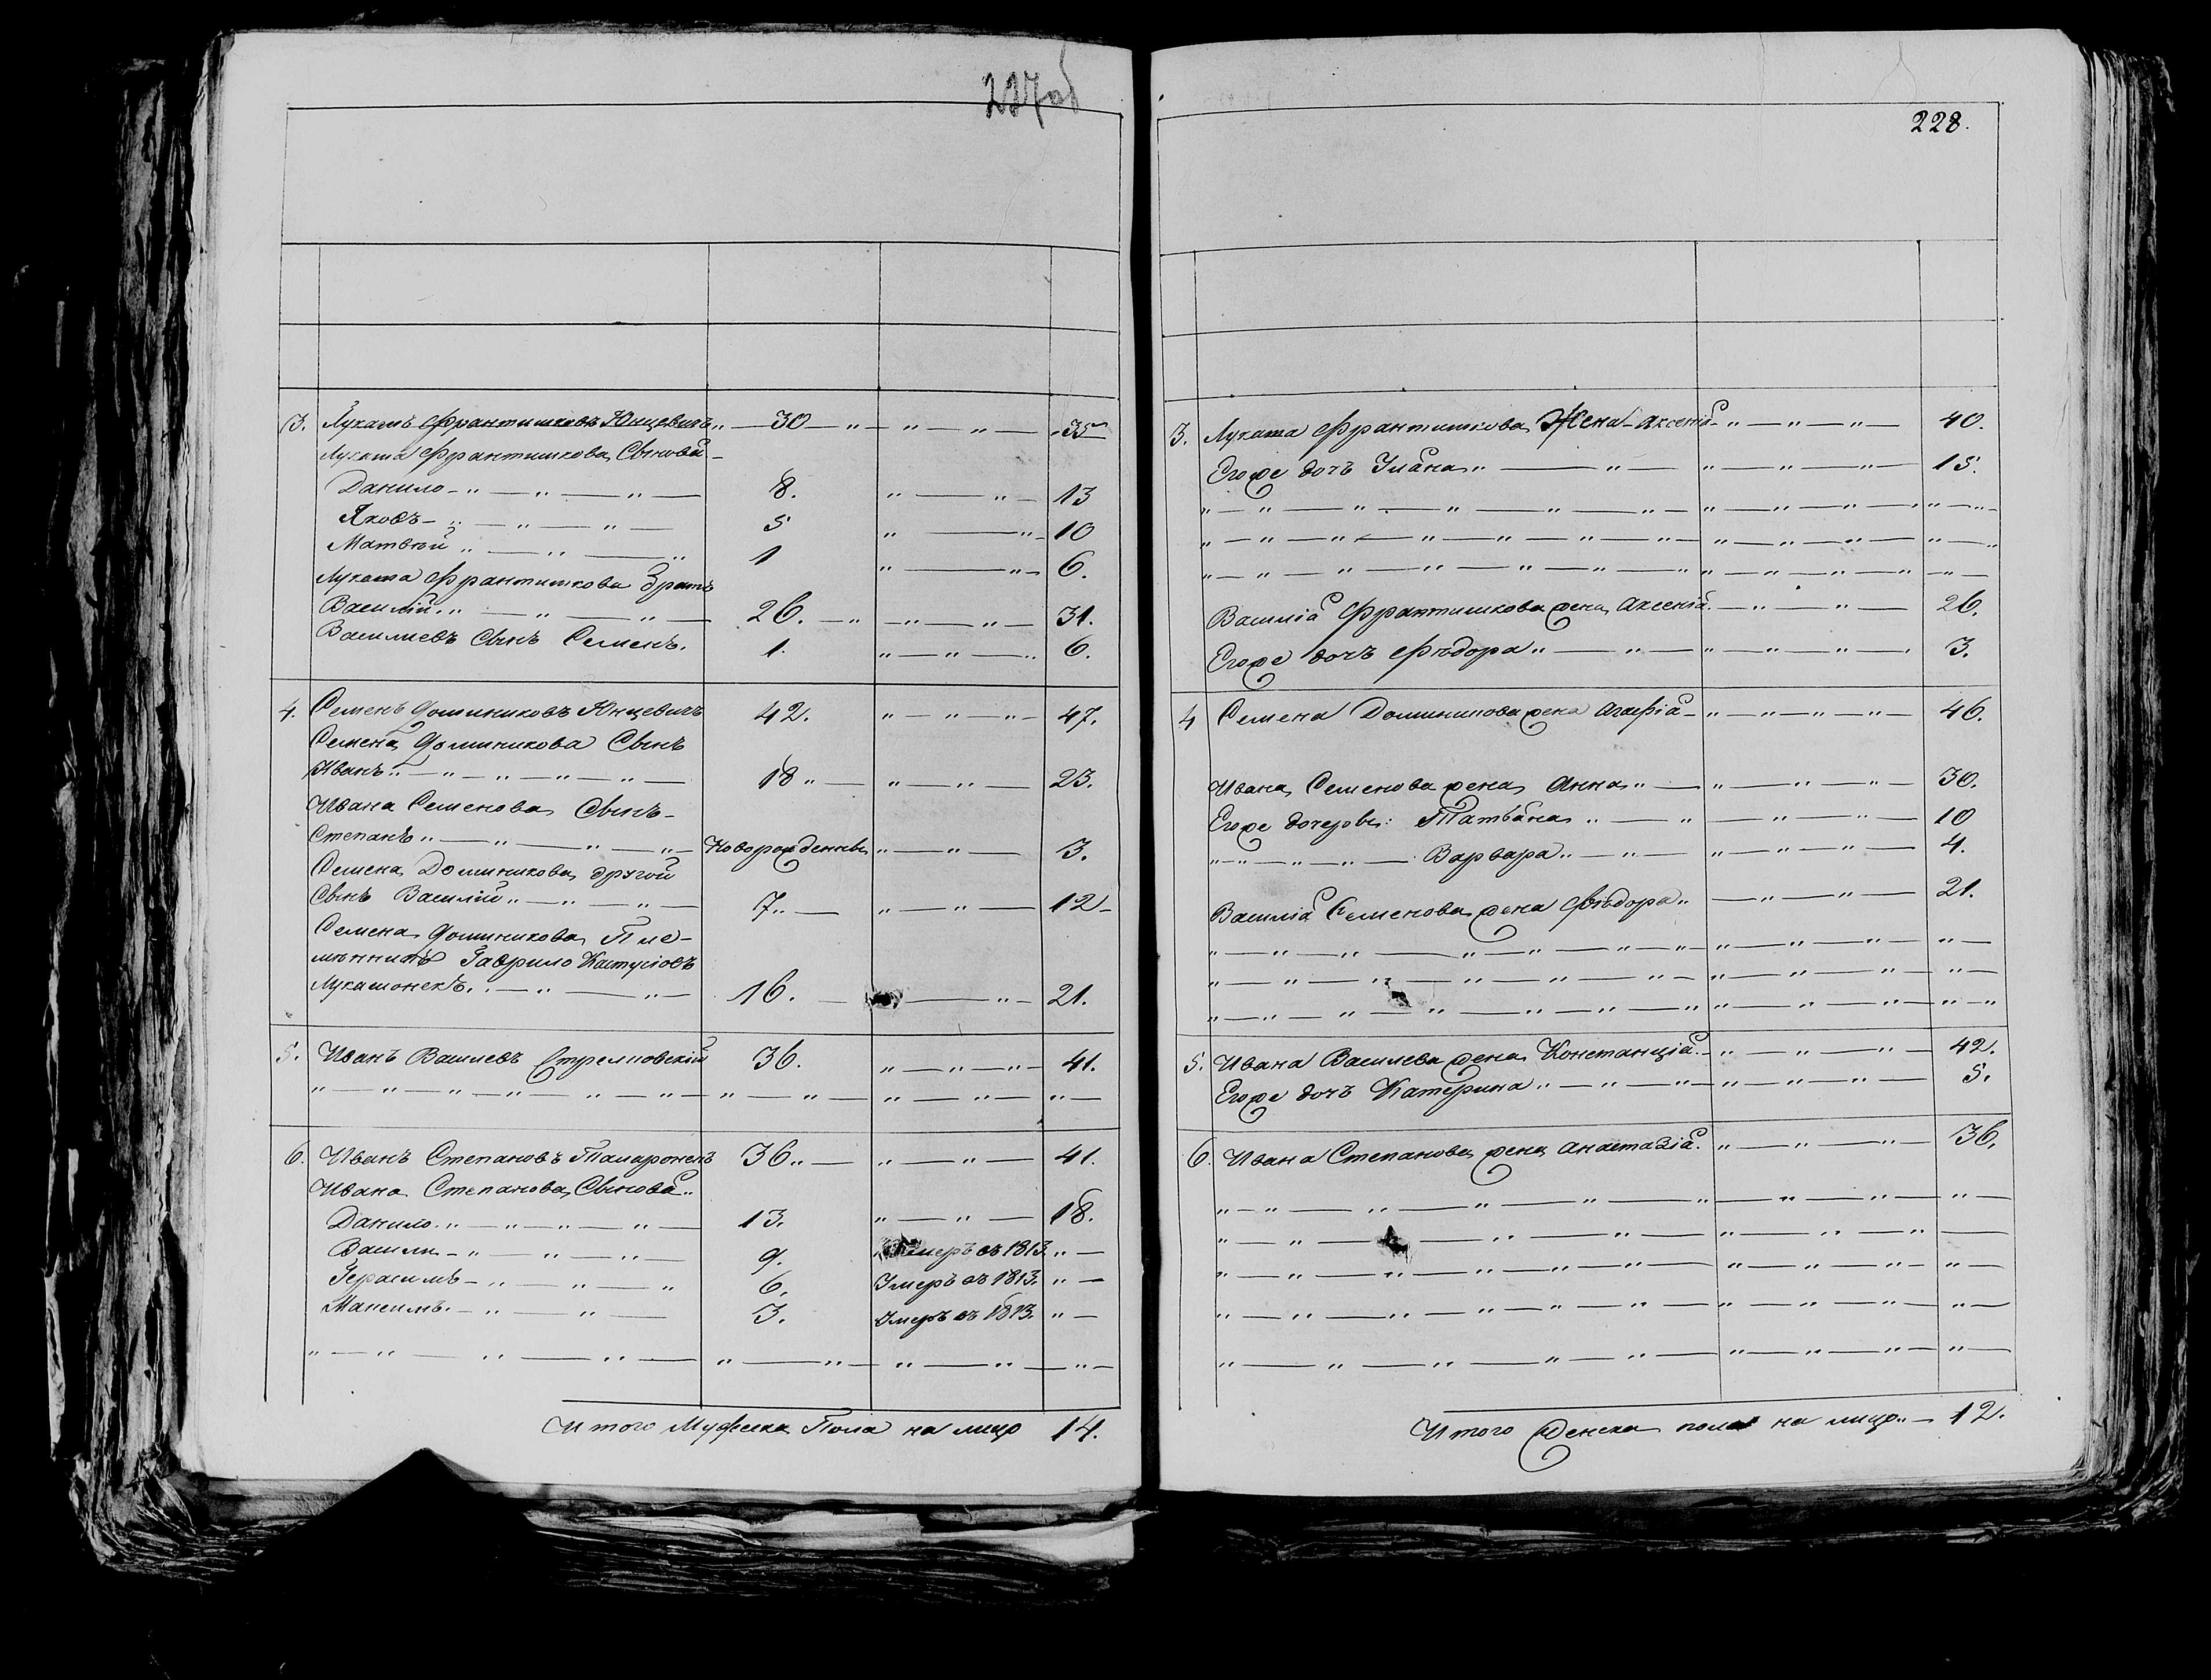 227об
3. Лукашъ Франтишковъ Юнцевичъ 30 35
Лукаша Франтишкова Сыновья
Данило 8. 13
Яковъ 5 10
Матвей 1 6.
Лукаша Франтишкова Братъ
Василій 26. 31.
Васильевъ Сынъ Семенъ. 1. 6.
4. Семенъ Доминиковъ Юнцевичъ 42. 47.
Семена Доминикова Сынъ
Иванъ 18 23.
Ивана Семенова Сынъ
Степанъ Новорожденны 3.
Семена Доминикова другой
Сынъ Василій 7. 12
Семена Доминикова Пле-
мянникъ Гаврило
Лукашонекъ. 16. 21.
5. Иванъ Василевъ Стрелковскій 36. 41.
6. Иванъ Степановъ 36. 41.
Ивана Степанова Сыновья
Данило 13. 18.
Васили 9. Умеръ въ 1813.
Герасимъ 6. Умеръ въ 1813.
Максимъ. 3. Умеръ въ 1813.
Итого Мужеска Пола на лицо 14.
228.
3. Лукаша Франтишкова Жена Аксенія 40.
Егоже дочъ Уліана 15.
Василія Франтишкова жена Аксенія 26.
Егоже дочъ Федора 3.
4 Семена Доминикова жена Агафія 46.
Ивана Семенова жена Анна 30.
Егоже дочеры: Татьяна 10
Варвара 4.
Василія Семенова жена Федора 21.
5. Ивана Василева жена Констанція 42.
Егоже дочъ Катерина 5.
6. Ивана Степанова жена Анастазія 36.
Итого Женска пола на лицо 12.